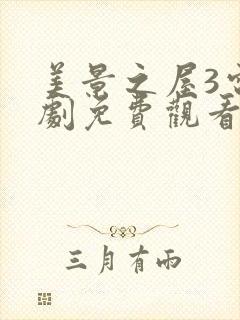 美景之屋3
劇免費觀看
三月有雨